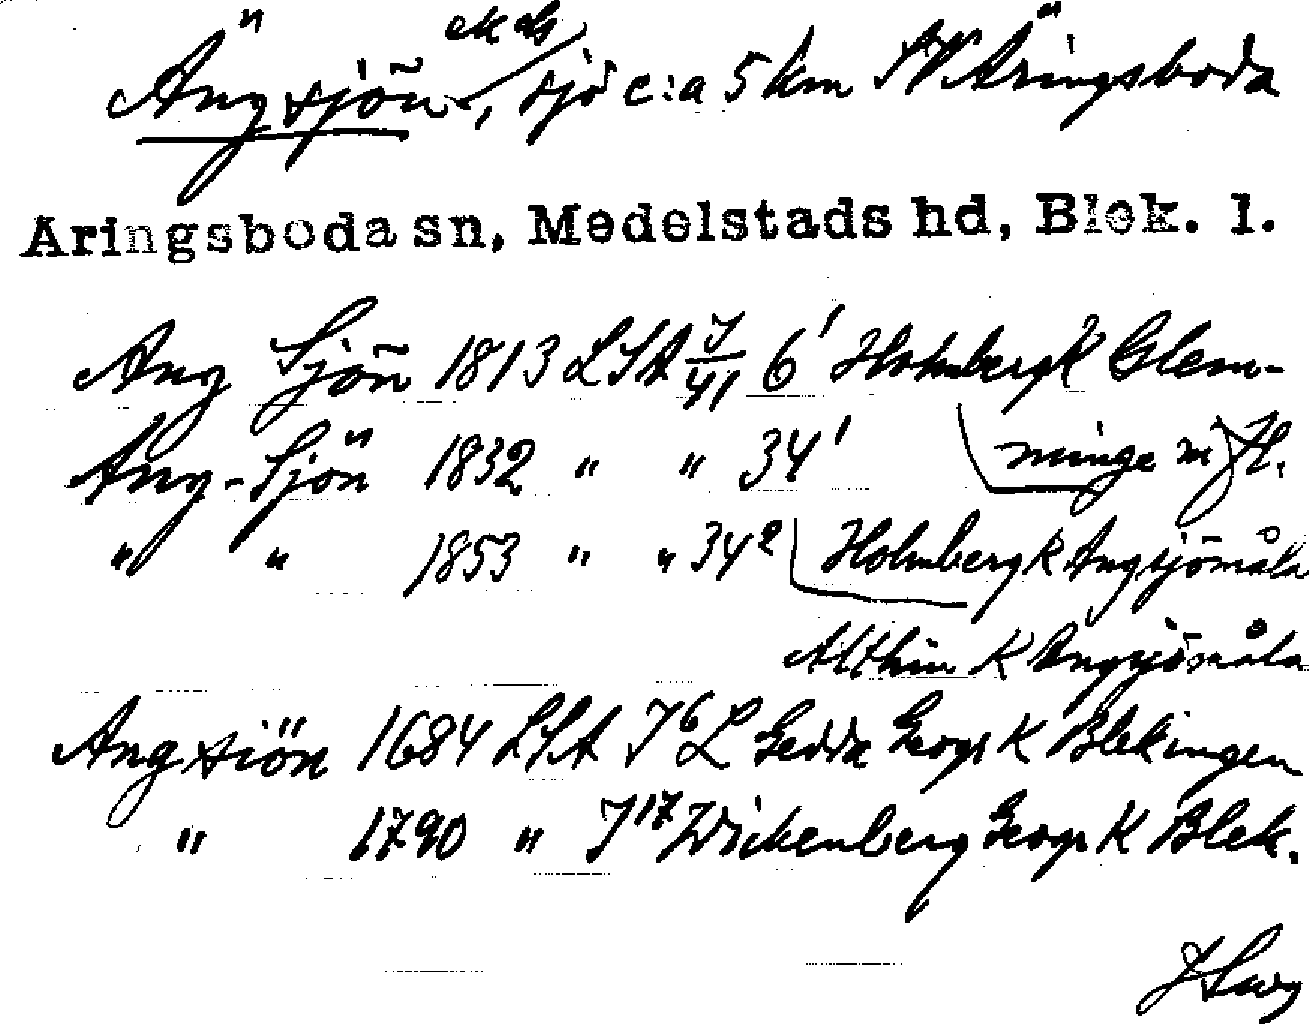 Ängsjön ekbl, sjö c:a 5 km SV Äringsboda
Äringsboda sn, Medelstads hd, Blek. l.
Äng Sjön 1813 LSA J/41 6¹ Holmberg K Glem-
Äng-Sjön 1832 " " 34¹ minge m fl.
" " 1853 " " 34² Holmberg K Ängsjömåla
Althin K Ängsjömåla
Angsiön 1684 LSA J⁶ L Gedda Geogr K Blekingen
" 1790 " J¹⁷ Wickenberg Geogr K Blek.